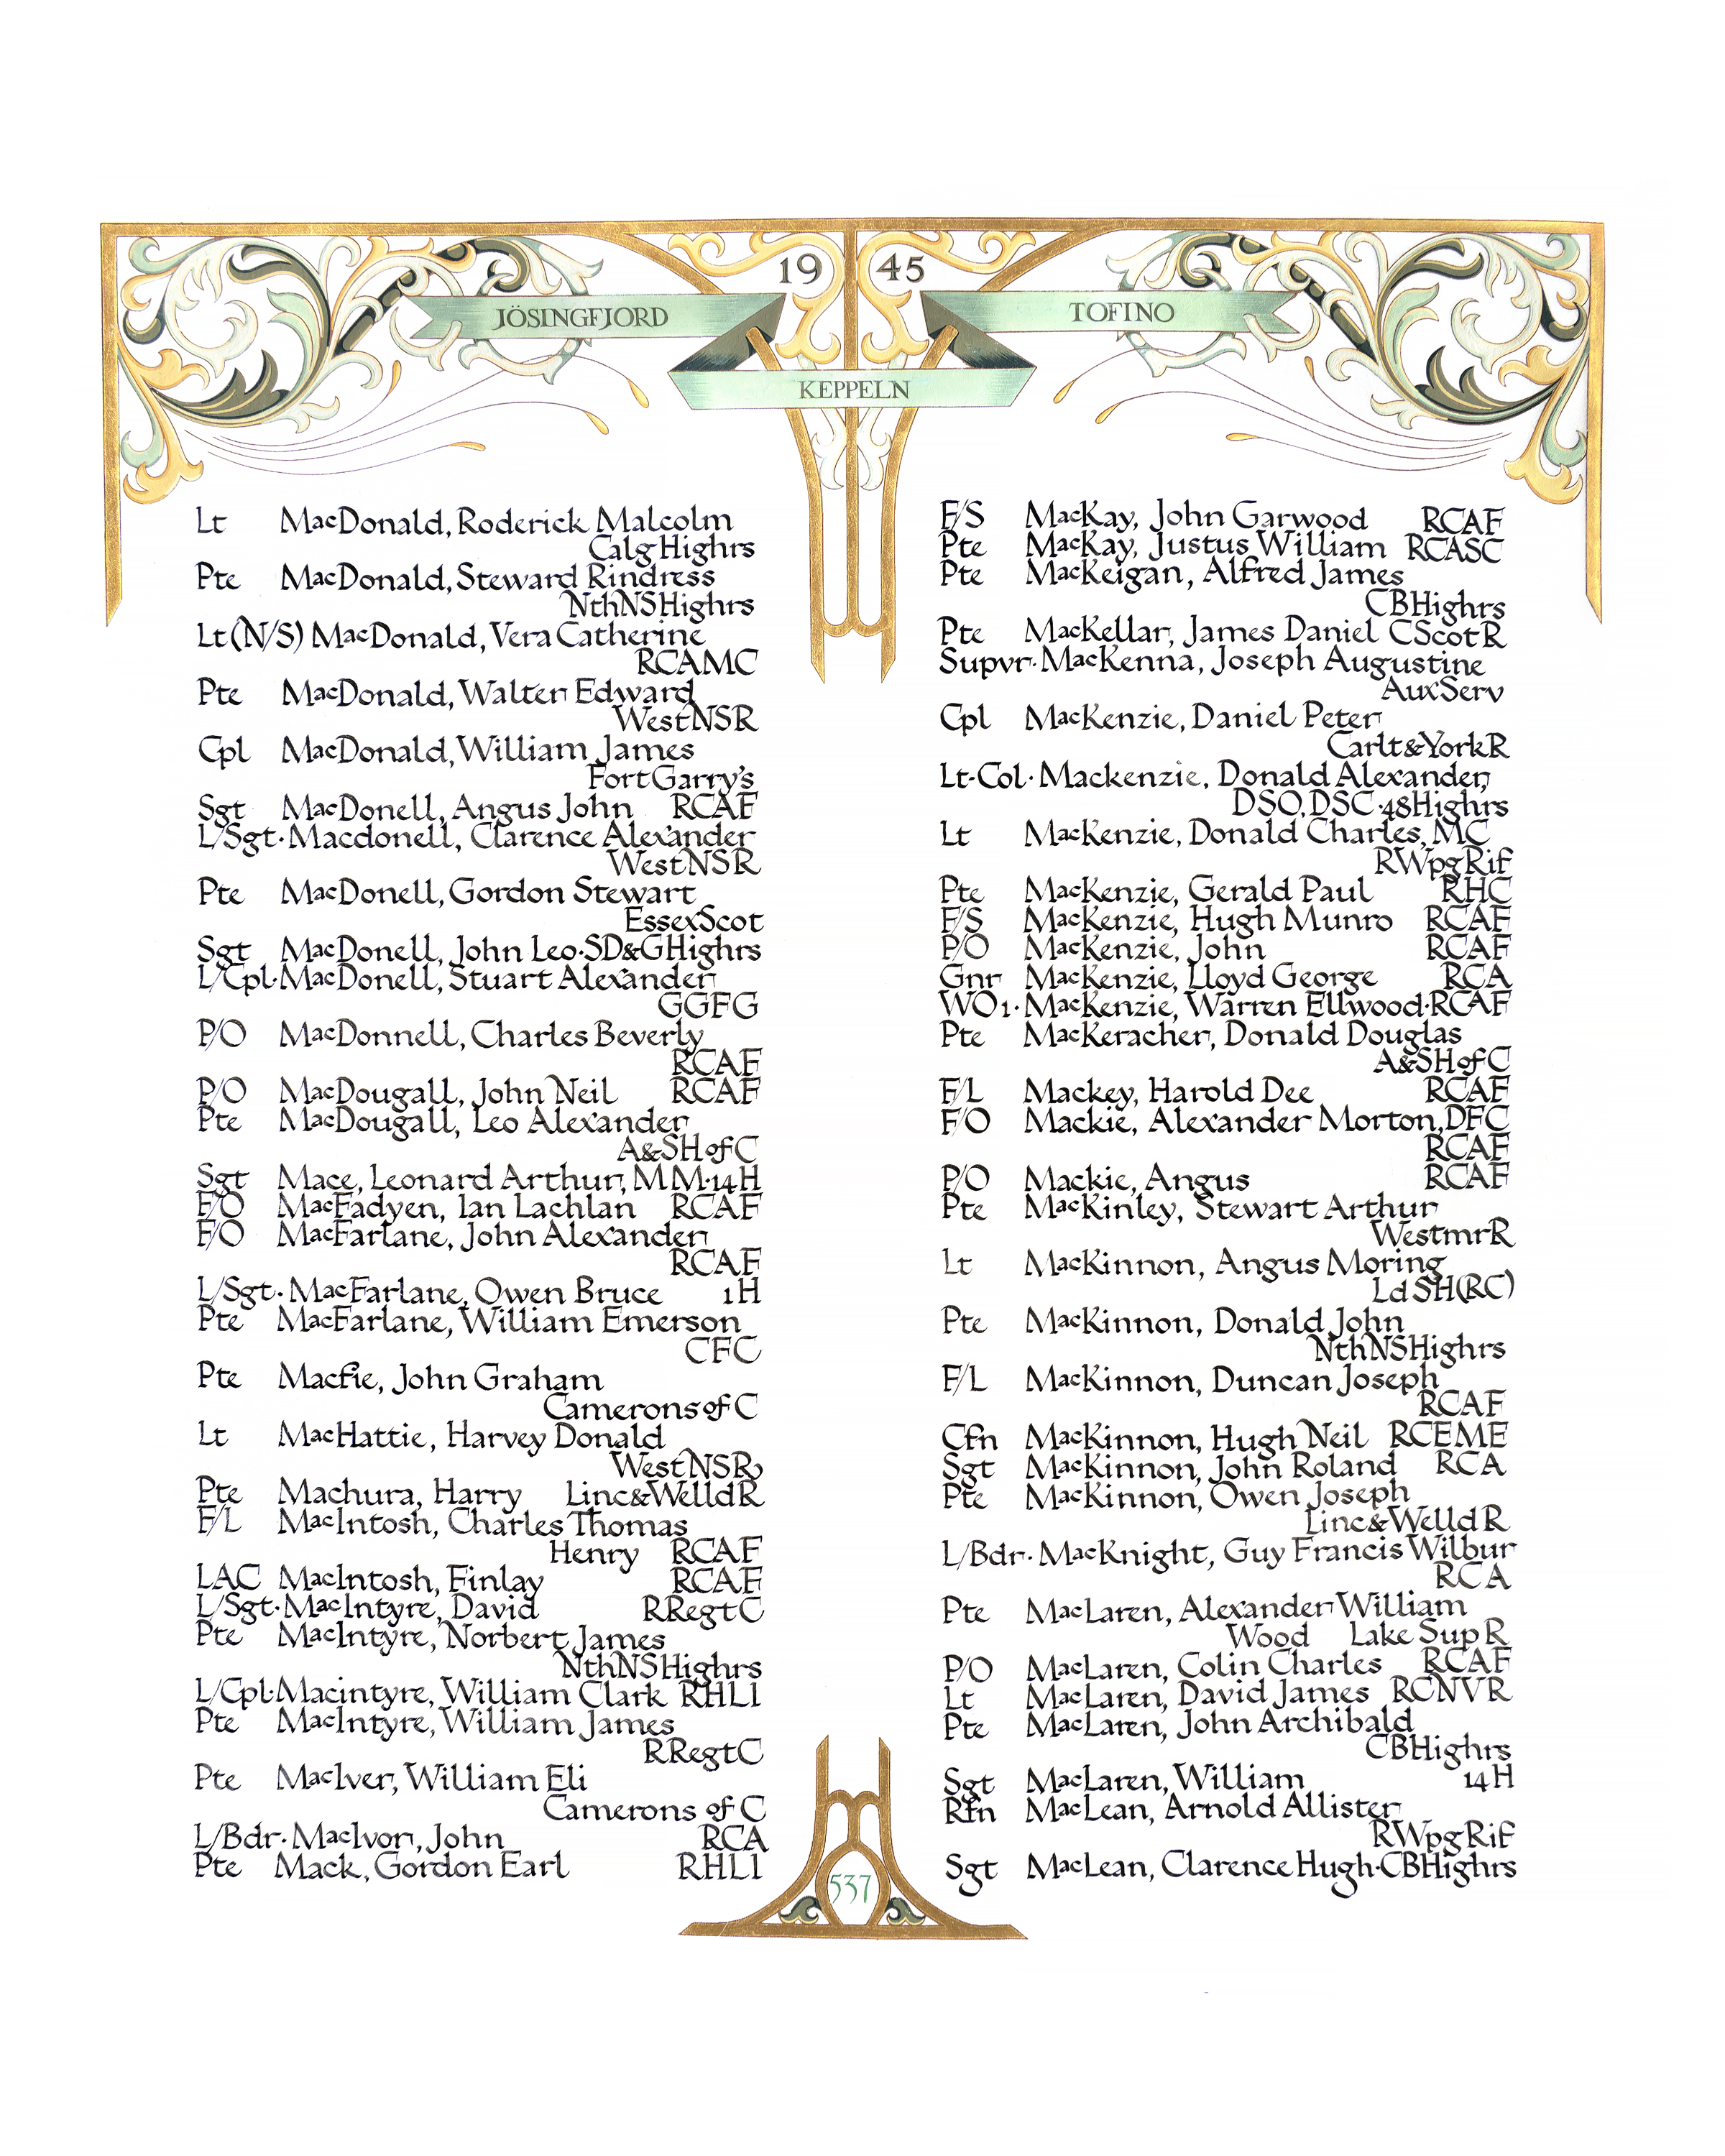 19 45
JÖSINGFJORD
TOFINO
KEPPELN
Lt MacDonald, Roderick Malcolm
Calg Highrs
Pte MacDonald, Steward Rindress
NthNSHighrs
Lt (N/S) MacDonald, Vera Catherine
RCAMC
Pte MacDonald, Walter Edward
WestNSR
Cpl MacDonald, William James
Fort Garry's
Sgt MacDonell, Angus John RCAF
L/Sgt· Macdonell, Clarence Alexander
WestNSR
Pte MacDonell, Gordon Stewart
EssexScot
Sgt MacDonell, John Leo·SD&GHighrs
L/Cpl·MacDonell, Stuart Alexander
GGFG
P/O MacDonnell, Charles Beverly
RCAF
P/O MacDougall, John Neil RCAF
Pte MacDougall, Leo Alexander
A&SHofC
Sgt Mace, Leonard Arthur, MM·14H
F/O MacFadyen, Ian Lachlan RCAF
F/O MacFarlane, John Alexander
RCAF
L/Sgt· MacFarlane, Owen Bruce 1H
Pte MacFarlane, William Emerson
CFC
Pte Macfie, John Graham
Camerons of C
Lt MacHattie, Harvey Donald
WestNSR
Pte Machura, Harry Linc&WelldR
F/L MacIntosh, Charles Thomas
Henry RCAF
LAC MacIntosh, Finlay RCAF
L/Sgt· MacIntyre, David RRegtC
Pte MacIntyre, Norbert James
NthNSHighrs
L/Cpl·Macintyre, William Clark RHLI
Pte MacIntyre, William James
RRegtC
Pte MacIver, William Eli
Camerons of C
L/Bdr· MacIvor, John RCA
Pte Mack, Gordon Earl RHLI
F/S MacKay, John Garwood RCAF
Pte MacKay, Justus William RCASC
Pte MacKeigan, Alfred James
CBHighrs
Pte MacKellar, James Daniel CScotR
Supvr· MacKenna, Joseph Augustine
AuxServ
Cpl MacKenzie, Daniel Peter
Carlt&YorkR
Lt-Col· Mackenzie, Donald Alexander,
DSO, DSC·48Highrs
Lt MacKenzie, Donald Charles, MC
RWpgRif
Pte MacKenzie, Gerald Paul RHC
F/S MacKenzie, Hugh Munro RCAF
P/O MacKenzie, John RCAF
Gnr MacKenzie, Lloyd George RCA
WO1· MacKenzie, Warren Ellwood·RCAF
Pte MacKeracher, Donald Douglas
A&SHofC
F/L Mackey, Harold Dee RCAF
F/O Mackie, Alexander Morton, DFC
RCAF
P/O Mackie, Angus RCAF
Pte MacKinley, Stewart Arthur
WestmrR
Lt MacKinnon, Angus Moring
Ld SH(RC)
Pte MacKinnon, Donald John
NthNSHighrs
F/L MacKinnon, Duncan Joseph
RCAF
Cfn MacKinnon, Hugh Neil RCEME
Sgt MacKinnon, John Roland RCA
Pte MacKinnon, Owen Joseph
Linc&WelldR
L/Bdr· MacKnight, Guy Francis Wilbur
RCA
Pte MacLaren, Alexander William
Wood Lake Sup R
P/O MacLaren, Colin Charles RCAF
Lt MacLaren, David James RCNVR
Pte MacLaren, John Archibald
CBHighrs
Sgt MacLaren, William 14H
Rfn MacLean, Arnold Allister
RWpgRif
Sgt MacLean, Clarence Hugh·CBHighrs
537